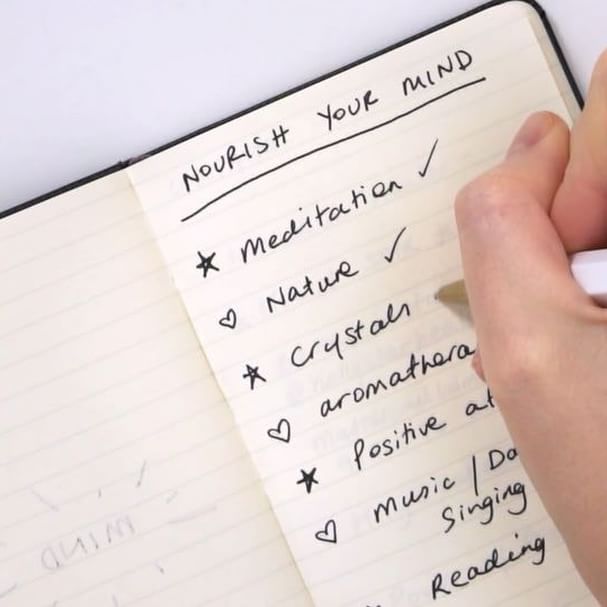 NOURISH YOUR MIND
★ Meditation ✓
♡ Nature ✓
★ Crystals
♡ aromathera
★ Positive at
♡ music / Da
Singing
Reading
MIND